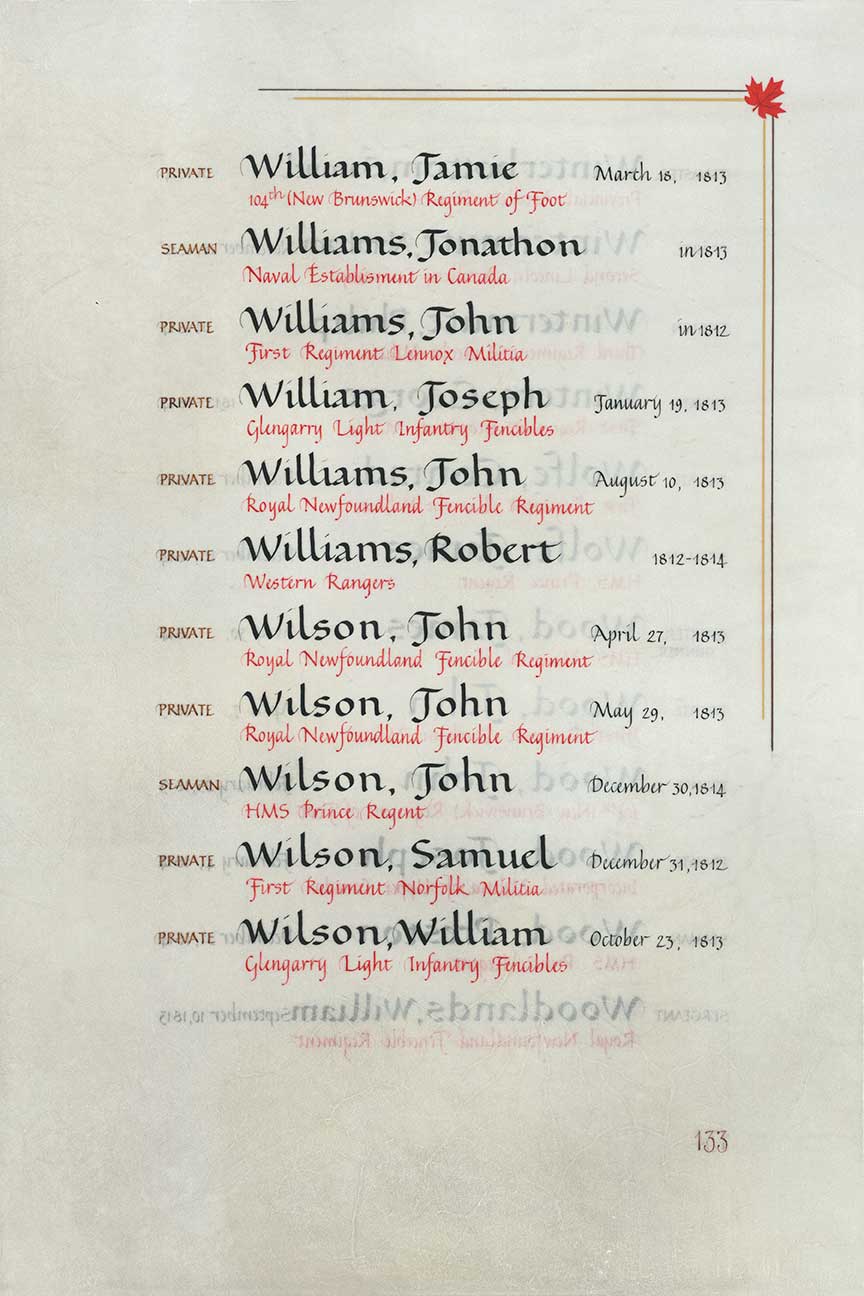 PRIVATE William, Jamie March 18, 1813
104th (New Brunswick) Regiment of Foot
SEAMAN Williams, Jonathon in 1813
Naval Establisment in Canada
PRIVATE Williams, John in 1812
First Regiment Lennox Militia
PRIVATE William, Joseph January 19, 1813
Glengarry Light Infantry Fencibles
PRIVATE Williams, John August 10, 1813
Royal Newfoundland Fencible Regiment
PRIVATE Williams, Robert 1812-1814
Western Rangers
PRIVATE Wilson, John April 27, 1813
Royal Newfoundland Fencible Regiment
PRIVATE Wilson, John May 29, 1813
Royal Newfoundland Fencible Regiment
SEAMAN Wilson, John December 30, 1814
HMS Prince Regent
PRIVATE Wilson, Samuel December 31, 1812
First Regiment Norfolk Militia
PRIVATE Wilson, William October 23, 1813
Glengarry Light Infantry Fencibles
SERGEANT Woodlands, William September 10, 1813
Royal Newfoundland Fencible Regiment
133